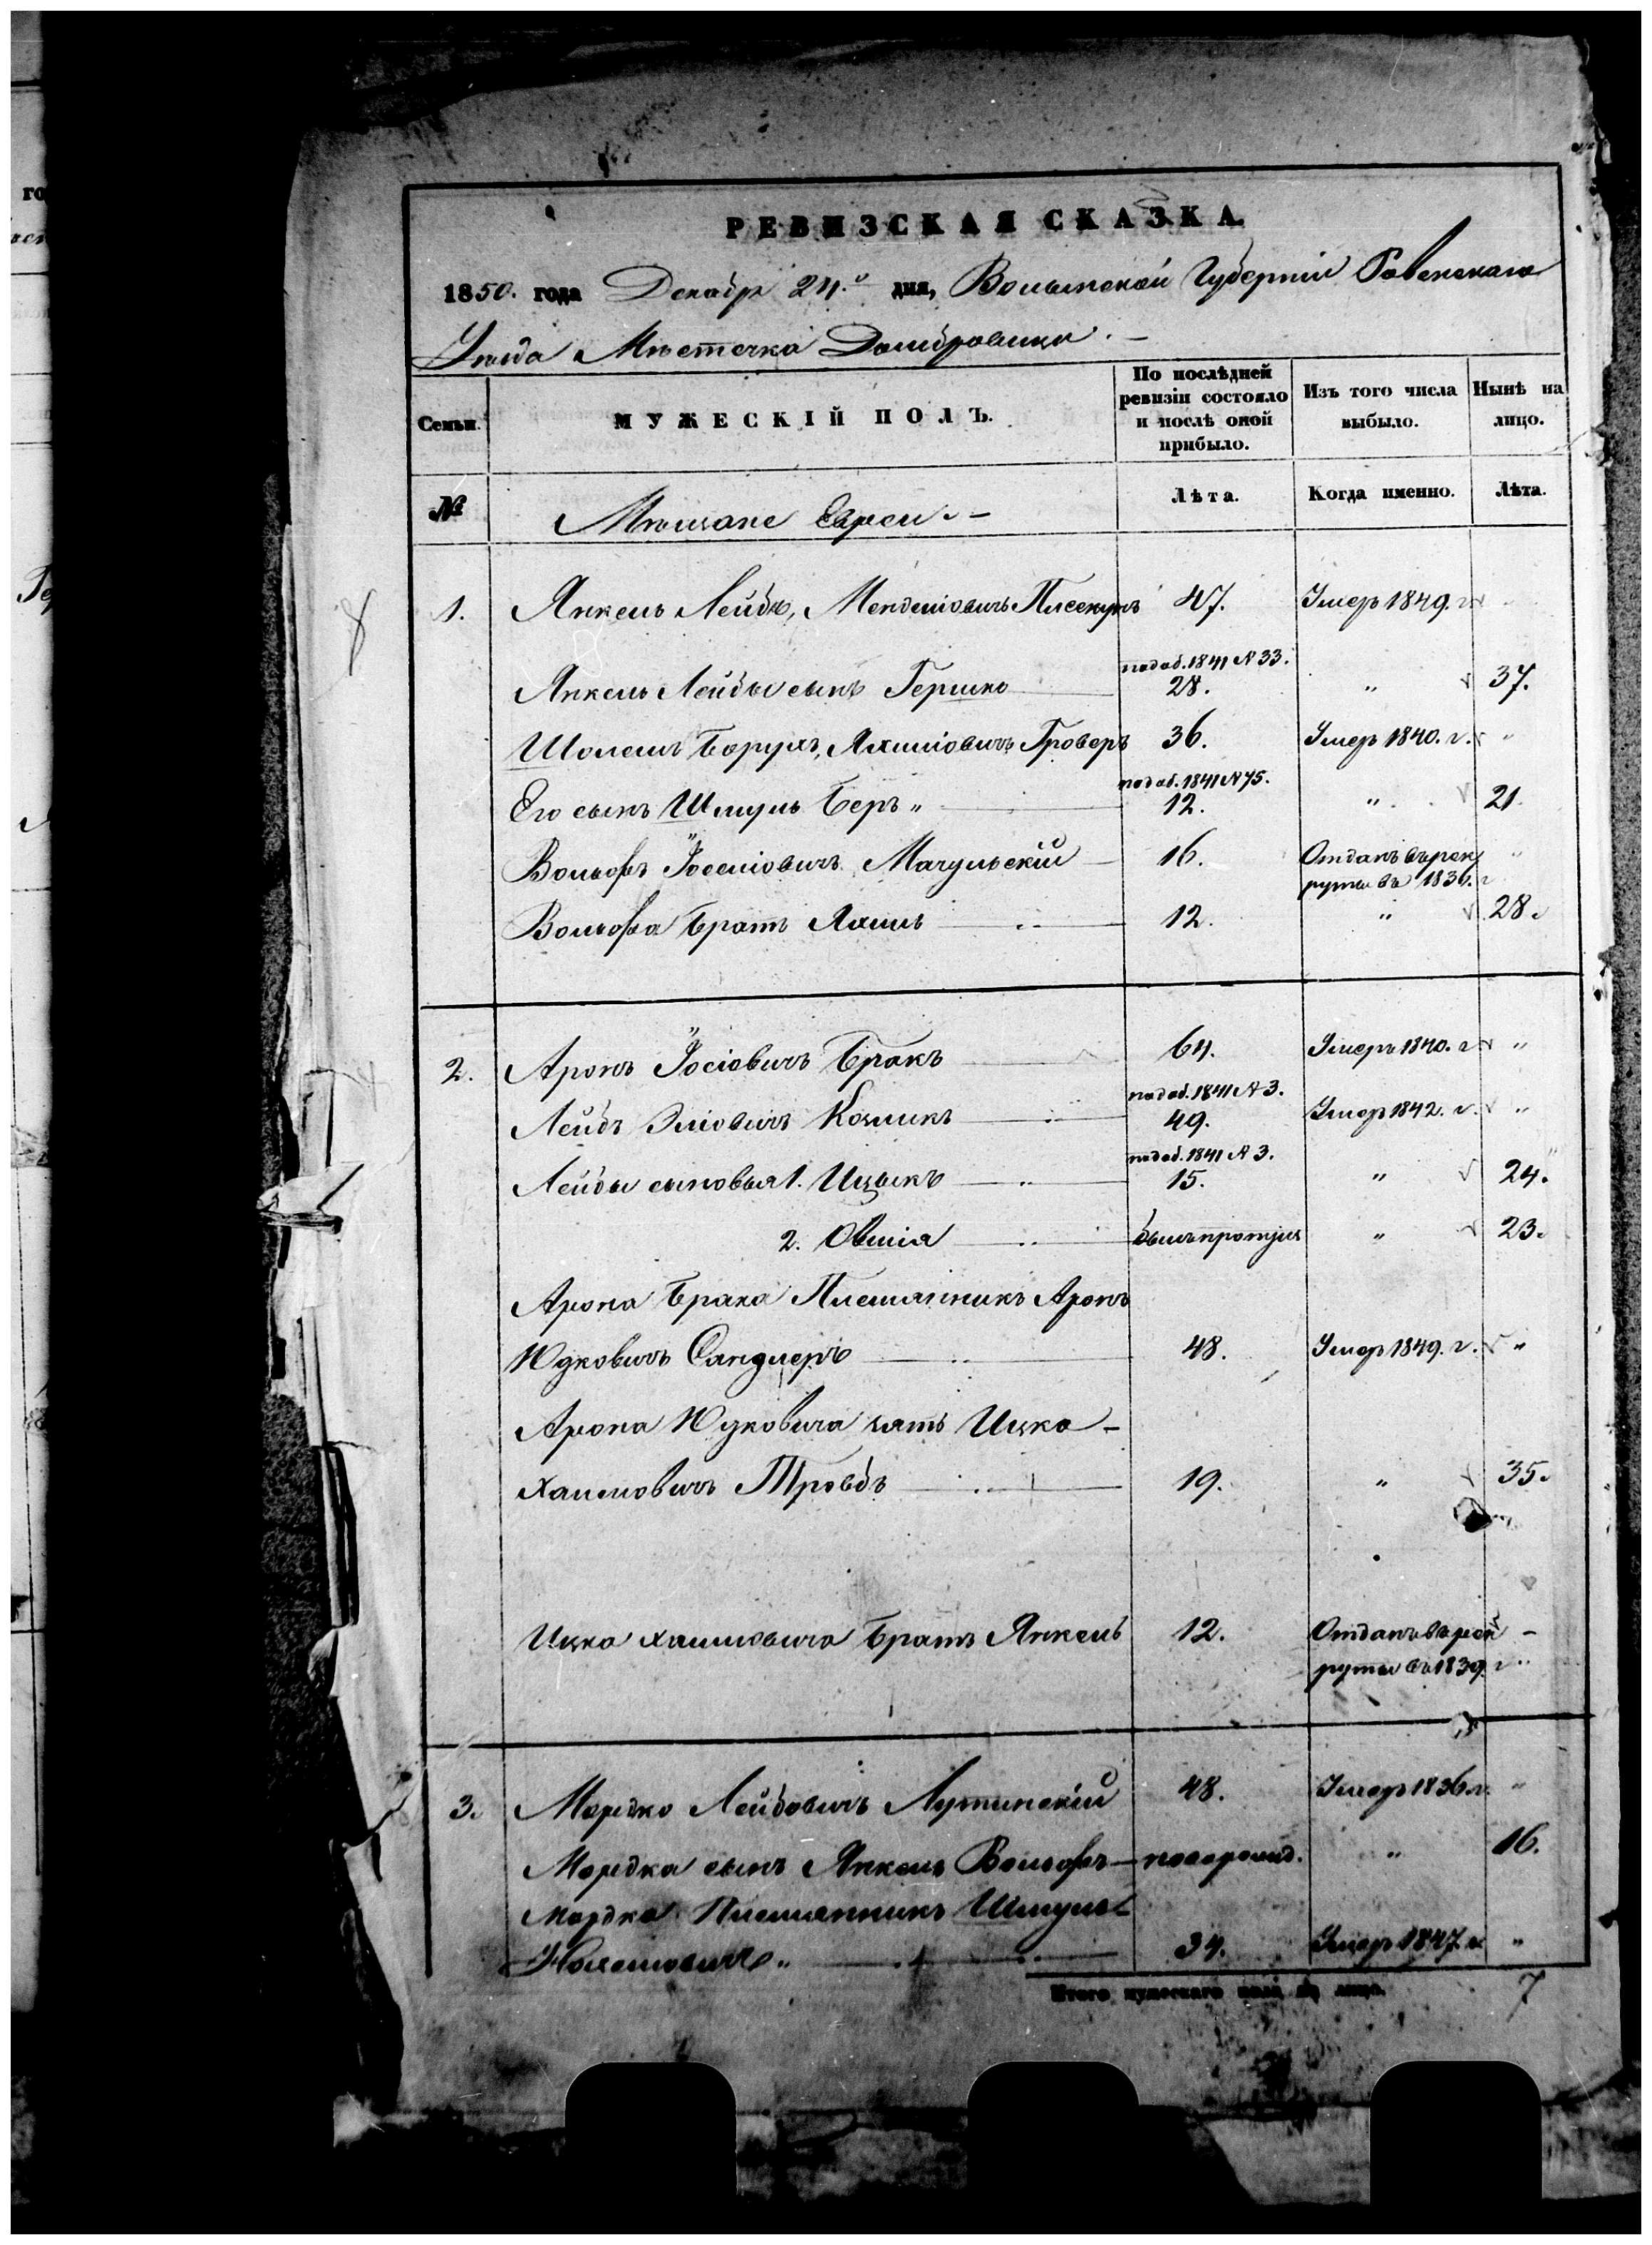 РЕВИЗСКАЯ СКАЗКА.
1850. года Декабр 24.го дня, Волынской Губерніи Ровенскаго
Уезда Мѣстечка Домбровицы. –
Семьи.
МУЖЕСКІЙ ПОЛЪ.
По послѣдней ревизіи состояло и послѣ оной прибыло.
Изъ того числа выбыло.
Нынѣ на лицо.
№
Мѣщане Евреи. –
Лѣта.
Когда именно.
Лѣта.
1. Янкель Лейбъ, Менделіовичъ Писекунъ 47. Умеръ 1849. г. "
по доб. 1841 № 33.
Янкель Лейбы сынъ Гершко 28. " 37.
Шолемъ Борухъ, Яхиліовичъ Гроверъ 36. Умеръ 1840. г. "
по доб. 1841 № 75.
Его сынъ Шмуль Беръ " 12. " 21.
Вольфъ Іоселіовичъ Мачульскій 16. Отданъ въ рек "
руты въ 1836. г
Вольфа Братъ Яхиль 12. " 28.
2. Аронъ Іосіовичъ Бракъ 64. Умеръ 1840. г. "
по доб. 1841 № 3.
Лейбъ Эліовичъ Кошикъ 49. Умеръ 1842. г. "
по доб. 1841 № 3.
Лейбы сыновья 1. Ицыкъ 15. " 24.
2. Овшія былъ пропущ " 23.
Арона Брака Племянникъ Аронъ
Юдковичъ Сандлеръ 48. Умеръ 1849. г. "
Арона Юдковича зять Ицко –
Хаимовичъ Тровбъ 19. " 35.
Ицка Хаимовича Братъ Янкель 12. Отданъ въ рек –
руты въ 1839. г "
3. Мордко Лейбовичъ Лутинскій 48. Умеръ 1836 г. "
Мордка сынъ Янкель Вольфъ – новорожд. " 16.
Мордка Племянникъ Шмуль
34. Умеръ 1847 г. "
Итого мужескаго пола на лицо. 7